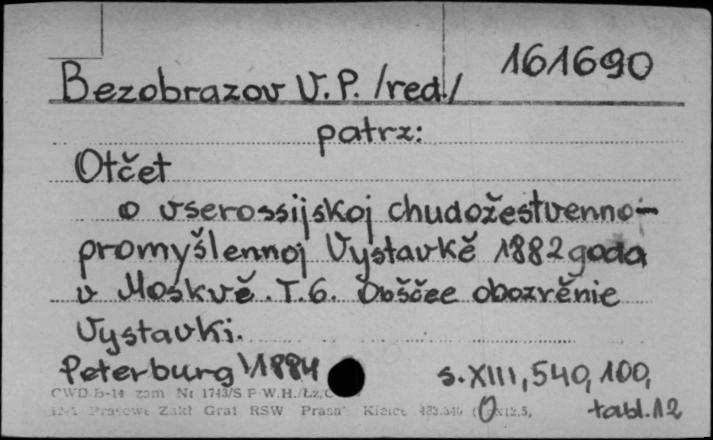 161690
Bezobrazov V. P. /red./
patrz:
Otčet
o vserossijskoj chudožestvenno-
promyšlennoj Vystavkě 1882 goda
v Moskvě. T. 6. Obščee obozrěnie
Vystavki.
Peterburg 1884 s. XIII, 540, 100,
tabl. 12
CWD B-14 zam Nr 1743/S P W.H./Łz,
Prasowe Zakł Graf RSW Prasa Kielce